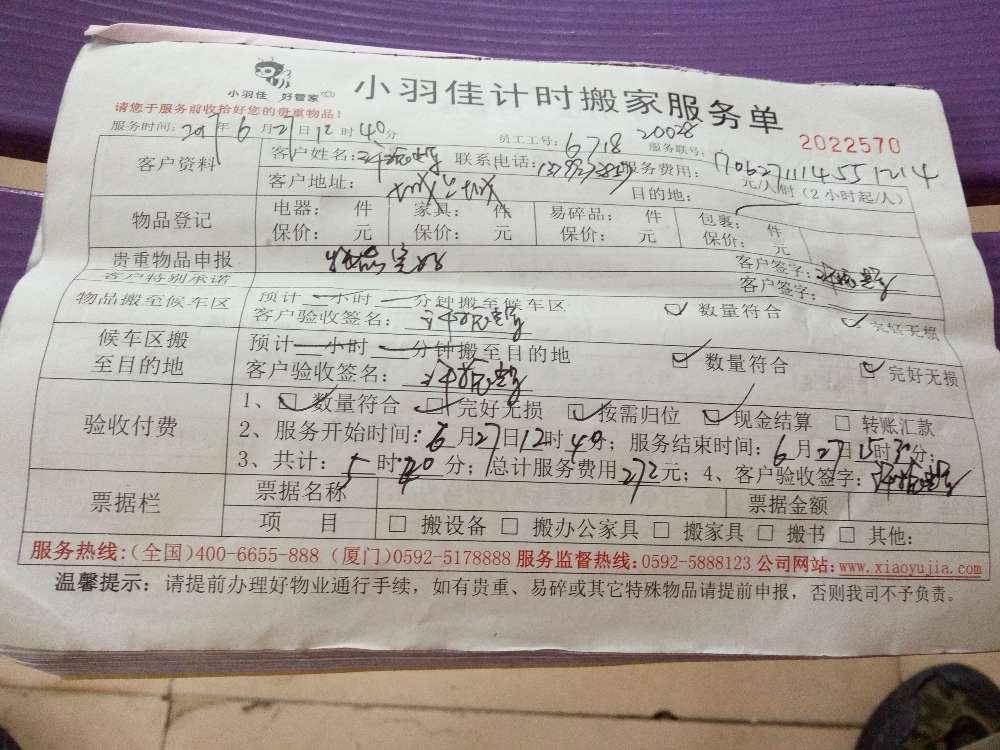 小羽佳 好管家
小羽佳计时搬家服务单
请您于服务前收拾好您的贵重物品！
2022570
服务时间：2017年6月27日12时40分 员工工号：6718 20028 服务联号：170627111455 1214
客户资料 客户姓名： 联系电话： 服务费用： 元/人/时（2小时起/人）
客户地址： 目的地：
物品登记 电器： 件 家具： 件 易碎品： 件 包裹： 件
保价： 元 保价： 元 保价： 元 保价： 元
贵重物品申报 物品完好 客户签字：
客户特别承诺 客户签字：
物品搬至候车区 预计 小时 分钟搬至候车区 ☑ 数量符合 ☑ 完好无损
客户验收签名：
候车区搬至目的地 预计 小时 分钟搬至目的地 ☑ 数量符合 ☑ 完好无损
客户验收签名：
验收付费 1、☑ 数量符合 ☑ 完好无损 ☑ 按需归位 ☑ 现金结算 □ 转账汇款
2、服务开始时间：6月27日12时40分；服务结束时间：6月27日15时30分；
3、共计：5时20分；总计服务费用272元；4、客户验收签字：
票据栏 票据名称 票据金额
项 目 □ 搬设备 □ 搬办公家具 □ 搬家具 □ 搬书 □ 其他：
服务热线：(全国)400-6655-888 (厦门)0592-5178888 服务监督热线：0592-5888123 公司网站：www.xiaoyujia.com
温馨提示：请提前办理好物业通行手续，如有贵重、易碎或其它特殊物品请提前申报，否则我司不予负责。